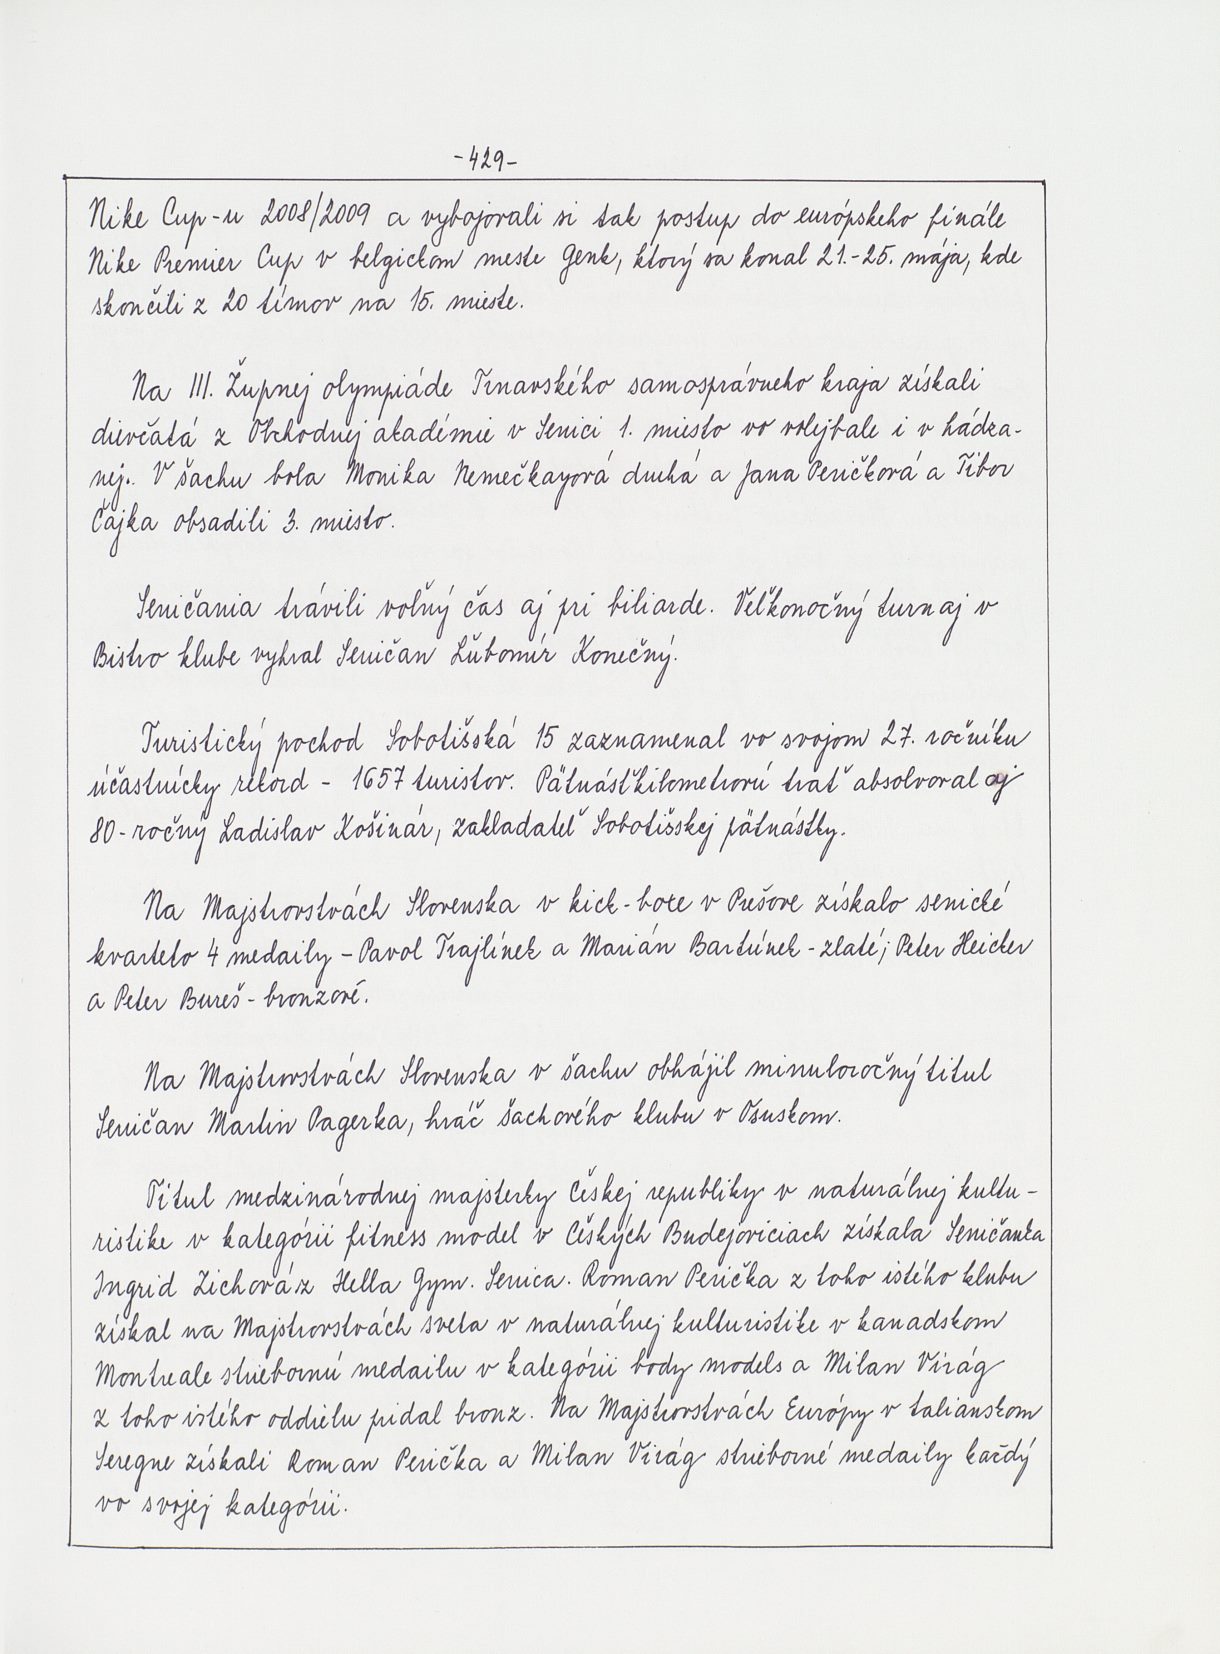 -429-
Nike Cup-u 2008/2009 a vybojovali si tak postup do európskeho finále
Nike Premier Cup v belgickom meste Genk, ktorý sa konal 21.-25. mája, kde
skončili z 20 tímov na 15. mieste.
Na III. Župnej olympiáde Trnavského samosprávneho kraja získali
dievčatá z Obchodnej akadémie v Senici 1. miesto vo volejbale i v hádza-
nej. V šachu bola Monika Nemečkayová druhá a Jana Peričková a Tibor
Čajka obsadili 3. miesto.
Seničania trávili voľný čas aj pri biliarde. Veľkonočný turnaj v
Bistro klube vyhral Seničan Ľubomír Konečný.
Turistický pochod Sobotišská 15 zaznamenal vo svojom 27. ročníku
účastnícky rekord - 1657 turistov. Pätnásťkilometrovú trať absolvoval aj
80-ročný Ladislav Košinár, zakladateľ Sobotišskej pätnástky.
Na Majstrovstvách Slovenska v kick-boxe v Prešove získalo senické
kvarteto 4 medaily - Pavol Trajlínek a Marián Bartúnek - zlaté; Peter Heicker
a Peter Bureš - bronzové.
Na Majstrovstvách Slovenska v šachu obhájil minuloročný titul
Seničan Martin Pagerka, hráč šachového klubu v Osuskom.
Titul medzinárodnej majsterky Českej republiky v naturálnej kultu-
ristike v kategórii fitness model v Českých Budejoviciach získala Seničanka
Ingrid Zichová z Hella Gym. Senica. Roman Perička z toho istého klubu
získal na Majstrovstvách sveta v naturálnej kulturistike v kanadskom
Montreale striebornú medailu v kategórii body models a Milan Virág
z toho istého oddielu pidal bronz. Na Majstrovstvách Európy v talianskom
Seregne získali Roman Perička a Milan Virág strieborné medaily každý
vo svojej kategórii.